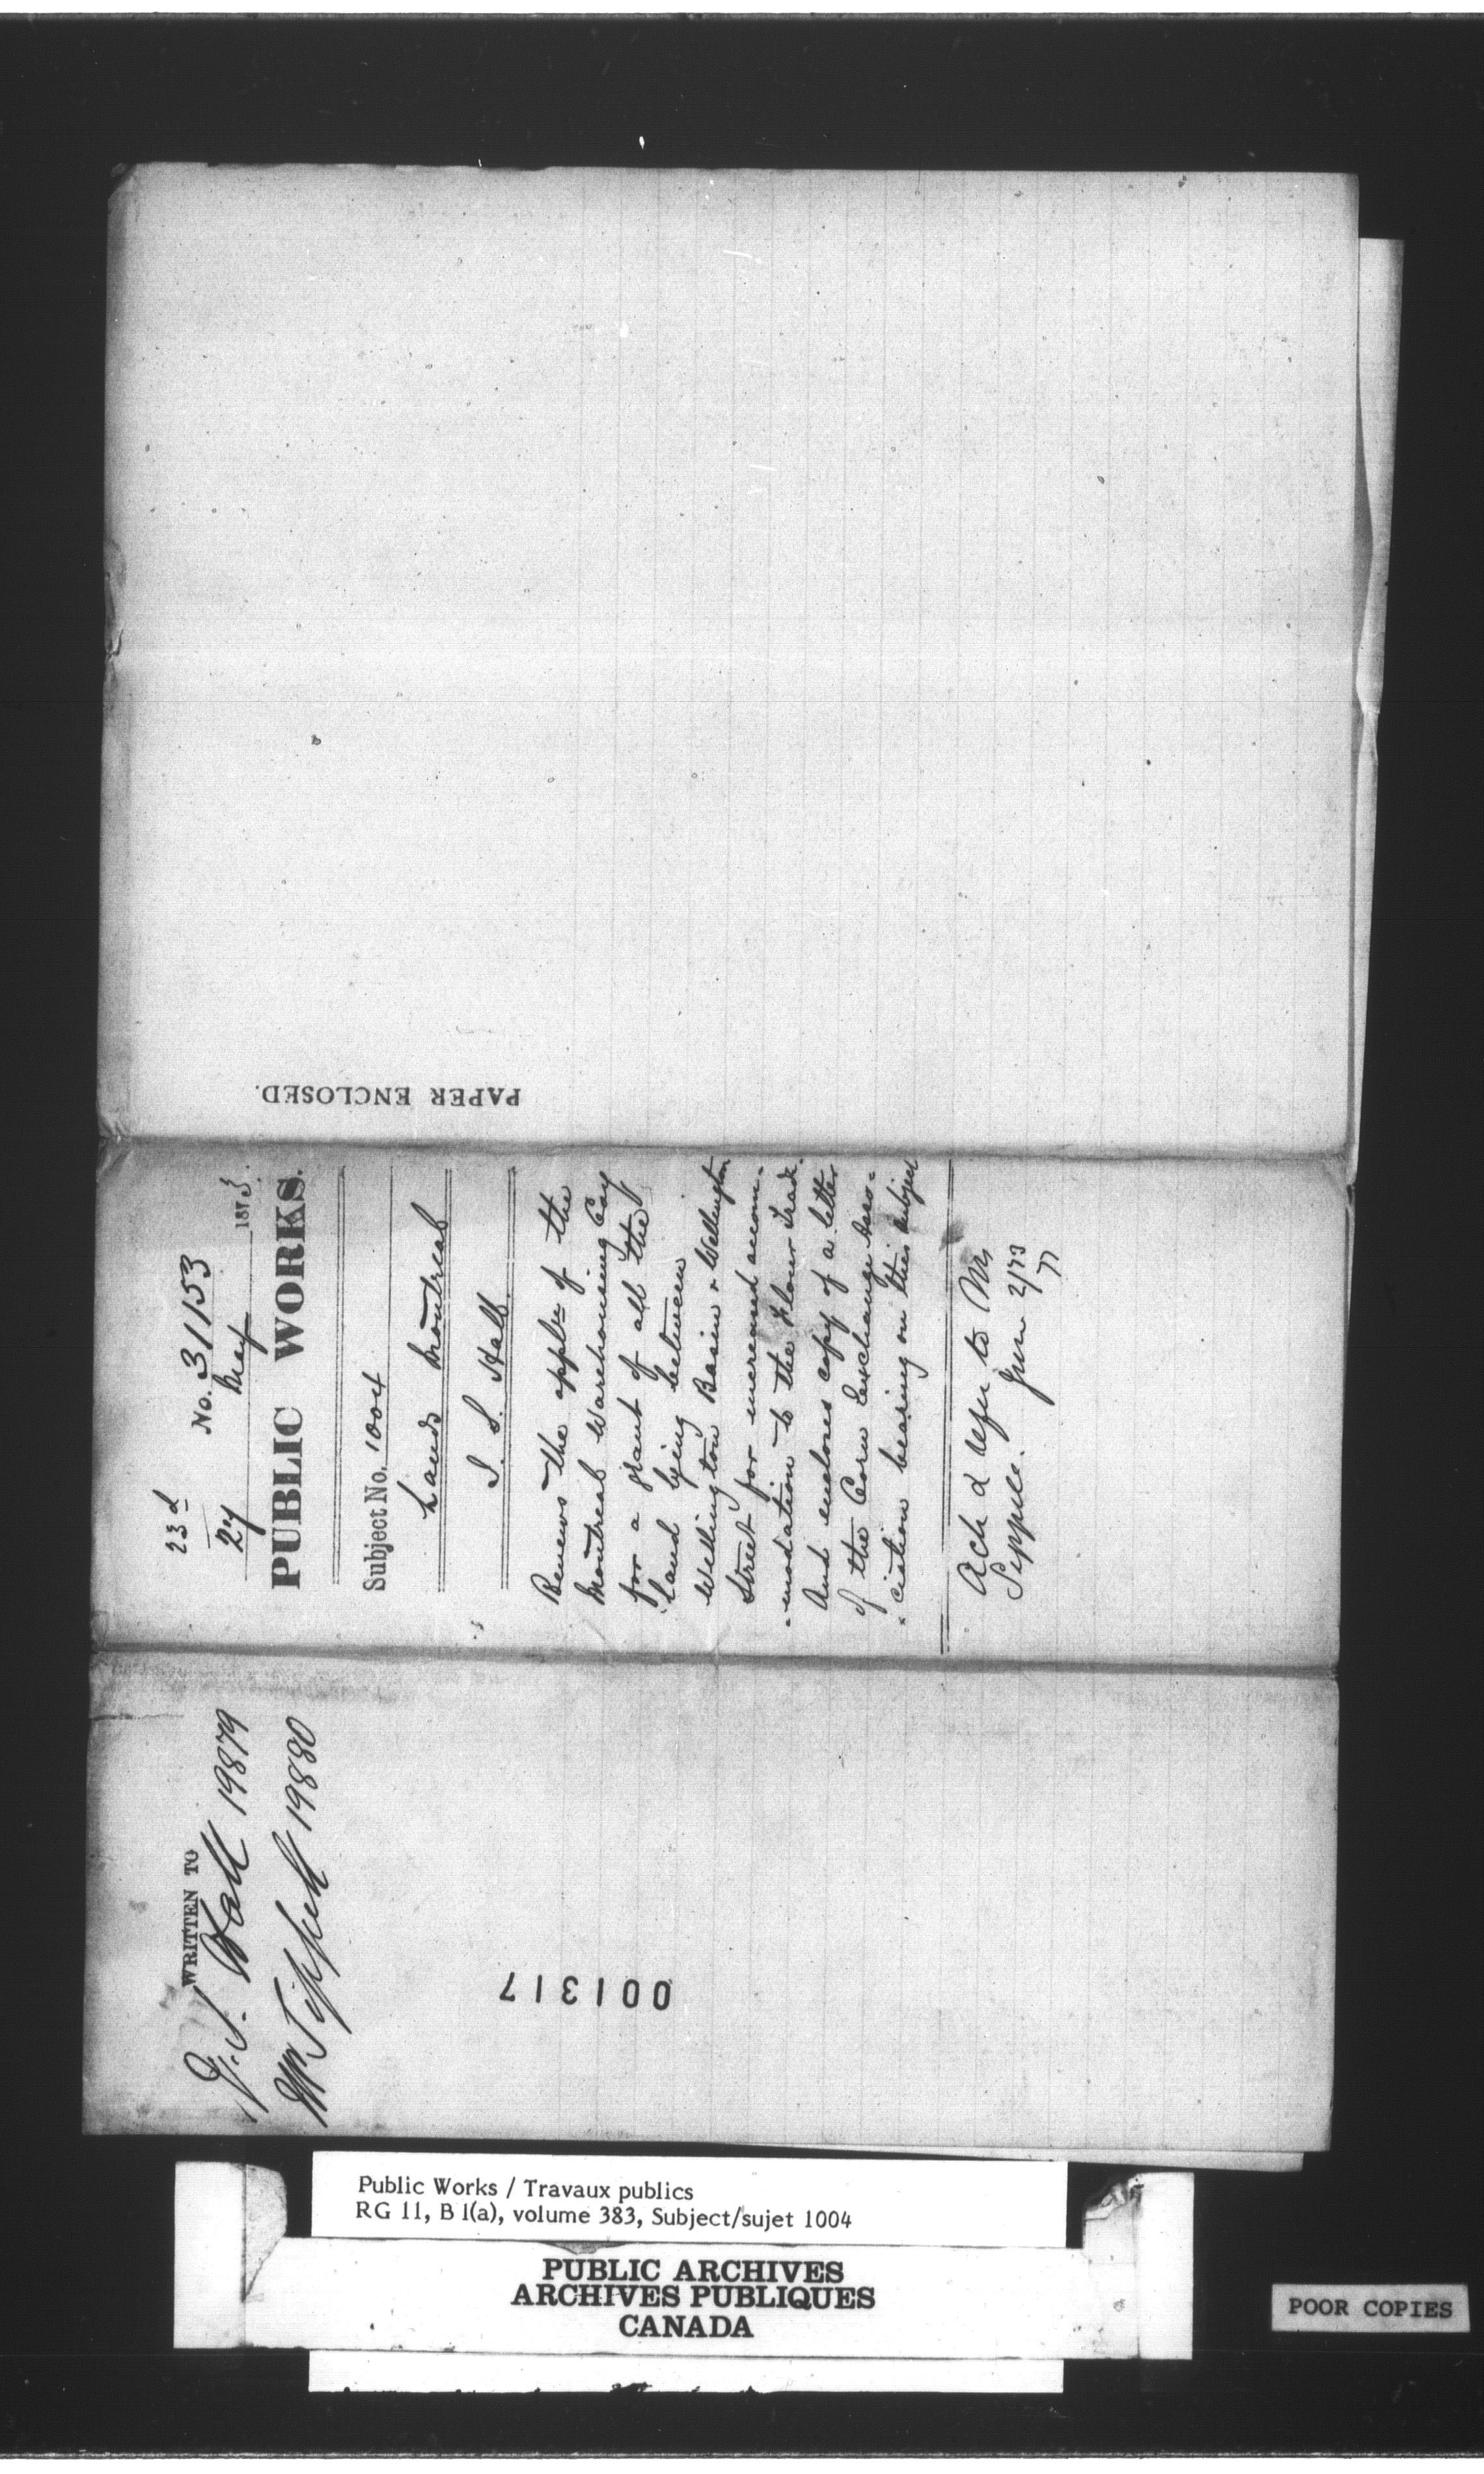 23d
No. 31153
27 May 1873.
PUBLIC WORKS.
Subject No. 1004
Lands Montreal
Renews the applen of the
Montreal Warehousing Coy
for a grant of all the
land lying between
Wellington Basin & Wellington
Street for increased accom-
-modation to the Flour Trade.
And encloses copy of a letter
of the Corn Exchange Asso-
-ciation bearing on this subject
Ack & refer to Mr
Sippell. June 2/73
PAPER ENCLOSED.
WRITTEN TO
19879
Mr Sippell 19880
001317
Public Works / Travaux publics
RG 11, B 1(a), volume 383, Subject/sujet 1004
PUBLIC ARCHIVES
ARCHIVES PUBLIQUES
CANADA
POOR COPIES